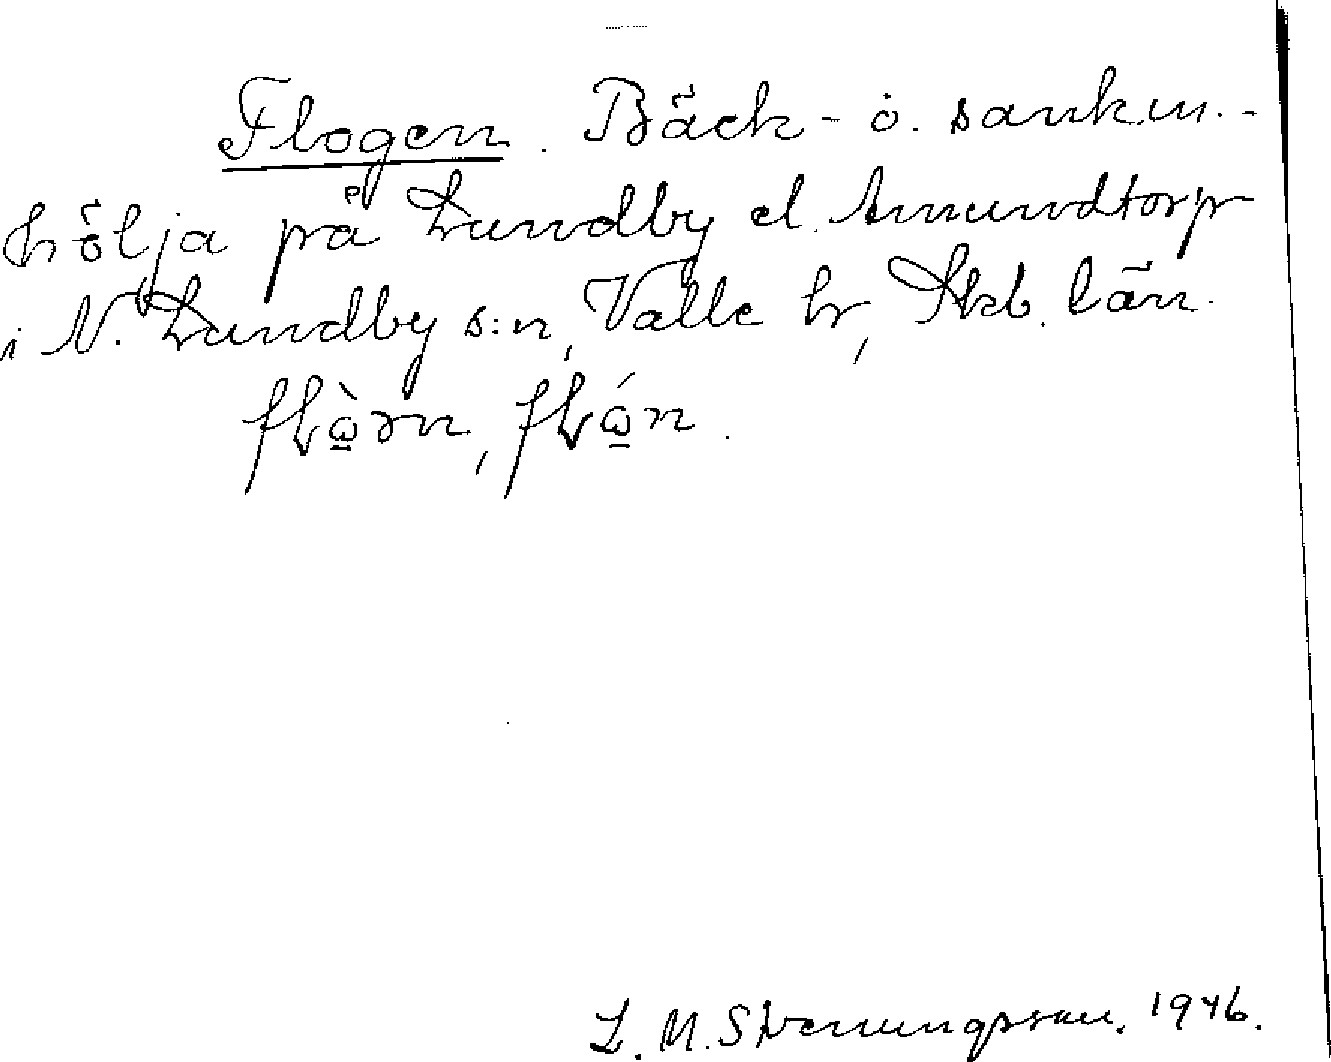 Flogen. Bäck- o. sankm.-
hölja på Lundby el. Amundtorp
i N. Lundby s:n, Valle hr, Skb. län.
flò̱rn, fló̱n.
L. M. Svenungsson. 1946.